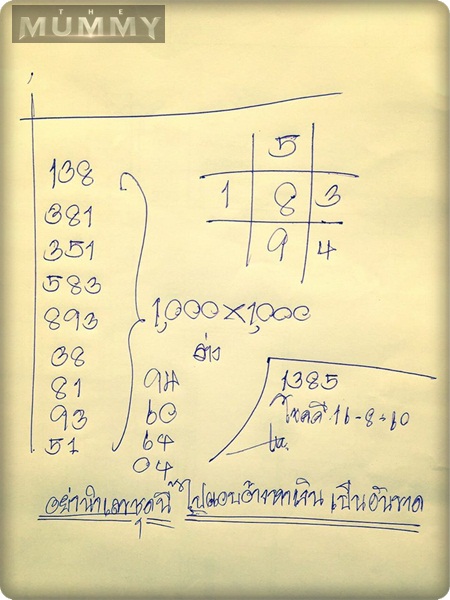 THE
MUMMY
5
1 8 3
9 4
138
381
351
583
893
38
81
93
51
1,000×1,000
ล่าง
94
60
64
04
1385
โชคดี 16-8-60
อย่านำเลขชุดนี้ ไปแอบอ้างหาเงิน เป็นอันขาด